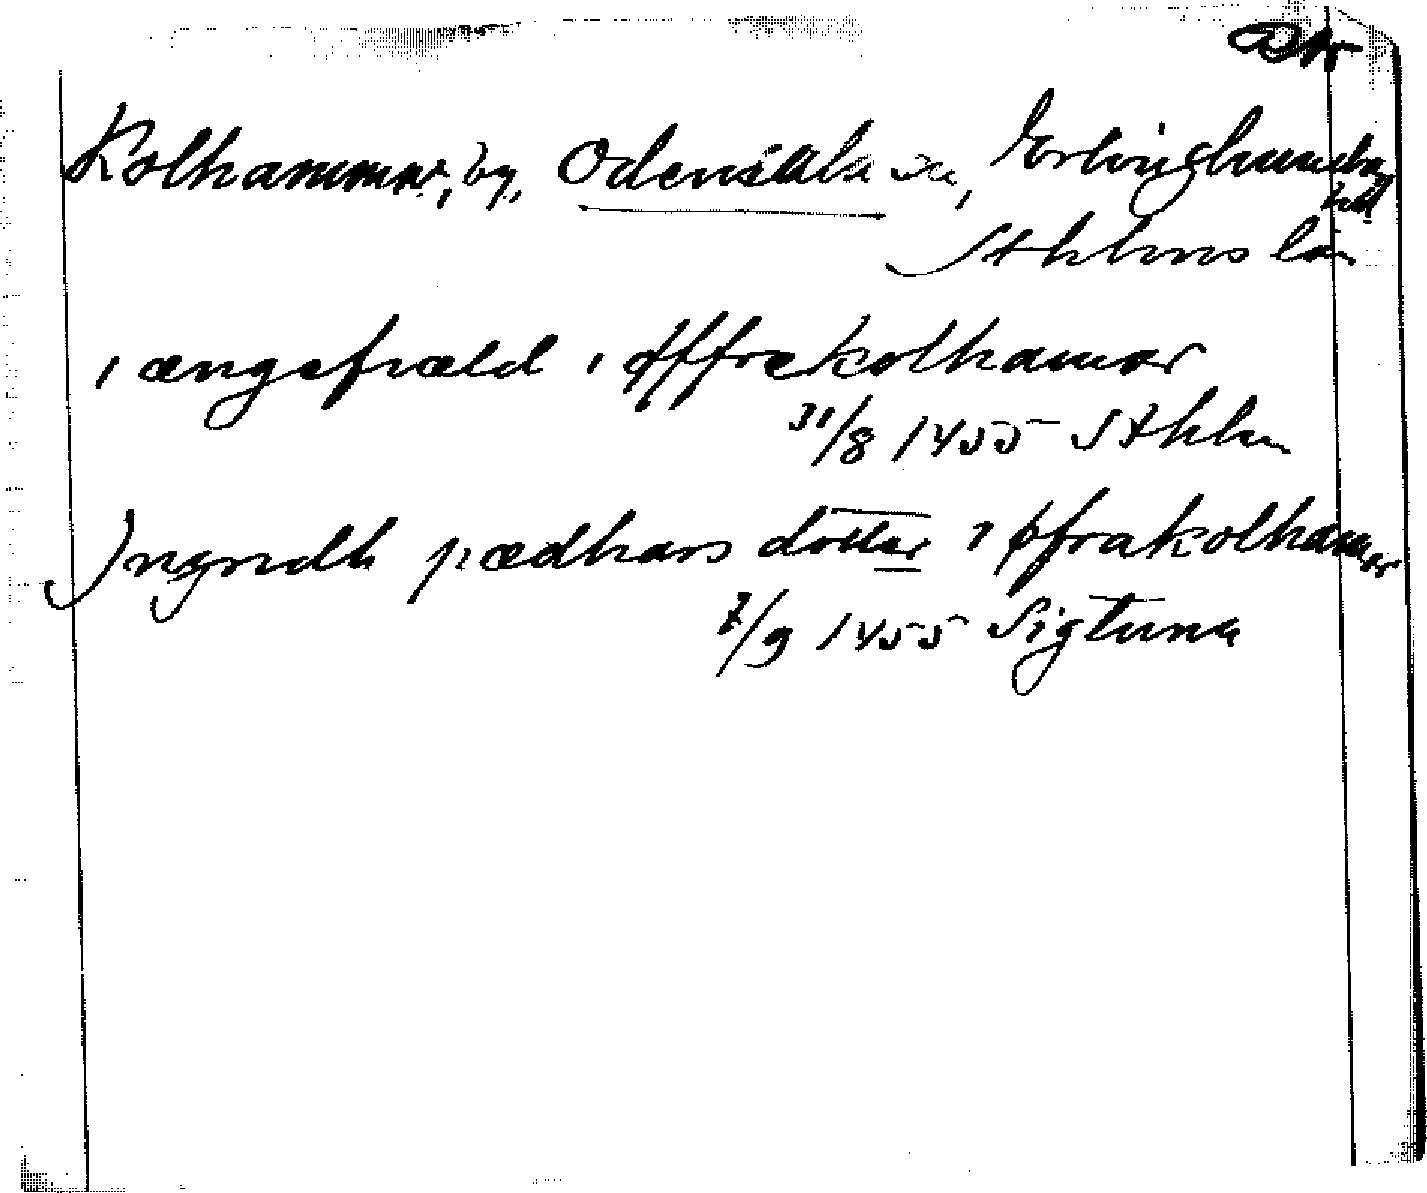 Kolhammar, by, Odensala sn, Erlinghundra
hd
Sthlms län
i ængefiæld i øffrekolhamar
31/8 1455 Sthlm
Jngridh pædhars dotter i øfrakolhamar
7/9 1455 Sigtuna